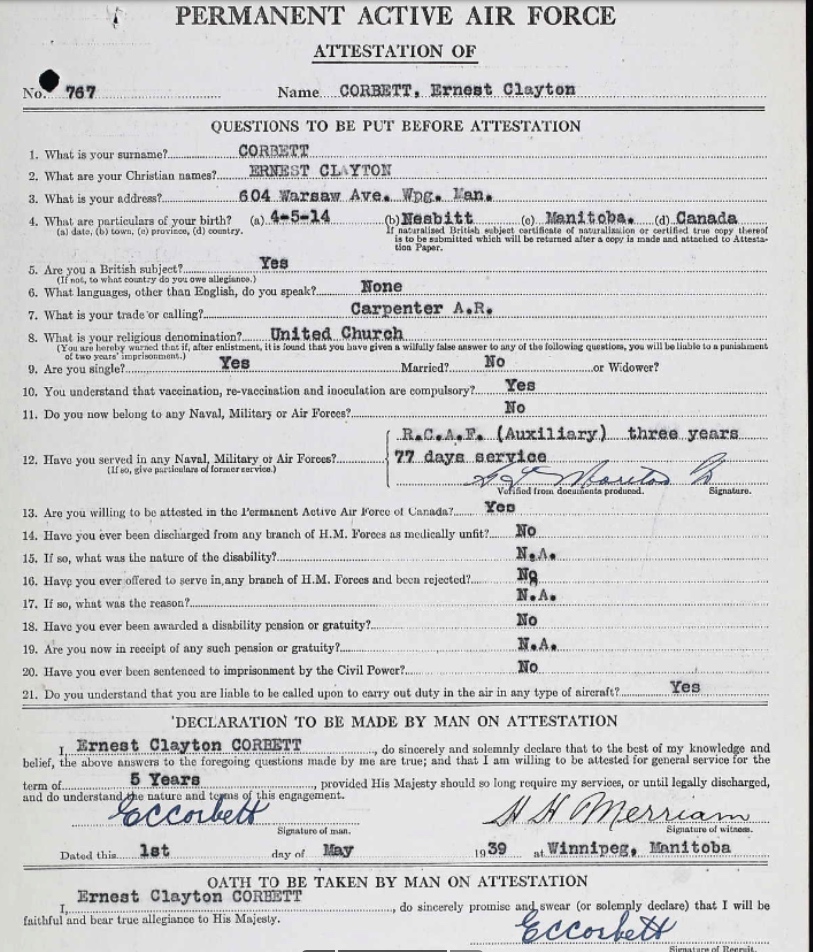 PERMANENT ACTIVE AIR FORCE
ATTESTATION OF
No. 767 Name CORBETT, Ernest Clayton
QUESTIONS TO BE PUT BEFORE ATTESTATION
1. What is your surname? CORBETT
2. What are your Christian names? ERNEST CLAYTON
3. What is your address? 604 Warsaw Ave. Wpg. Man.
4. What are particulars of your birth? (a) 4-5-14 (b) Nesbitt (c) Manitoba. (d) Canada
(a) date, (b) town, (c) province, (d) country. If naturalized British subject certificate of naturalization or certified true copy thereof
is to be submitted which will be returned after a copy is made and attached to Attesta-
tion Paper.
5. Are you a British subject? Yes
(If not, to what country do you owe allegiance.)
6. What languages, other than English, do you speak? None
7. What is your trade or calling? Carpenter A.R.
8. What is your religious denomination? United Church
(You are hereby warned that if, after enlistment, it is found that you have given a wilfully false answer to any of the following questions, you will be liable to a punishment
of two years' imprisonment.)
9. Are you single? Yes Married? No or Widower?
10. You understand that vaccination, re-vaccination and inoculation are compulsory? Yes
11. Do you now belong to any Naval, Military or Air Forces? No
R.C.A.F. (Auxiliary) three years
12. Have you served in any Naval, Military or Air Forces? 77 days service
(If so, give particulars of former service.)
Verified from documents produced. Signature.
13. Are you willing to be attested in the Permanent Active Air Force of Canada? Yes
14. Have you ever been discharged from any branch of H.M. Forces as medically unfit? No
15. If so, what was the nature of the disability? N.A.
16. Have you ever offered to serve in any branch of H.M. Forces and been rejected? No
17. If so, what was the reason? N.A.
18. Have you ever been awarded a disability pension or gratuity? No
19. Are you now in receipt of any such pension or gratuity? N.A.
20. Have you ever been sentenced to imprisonment by the Civil Power? No
21. Do you understand that you are liable to be called upon to carry out duty in the air in any type of aircraft? Yes
DECLARATION TO BE MADE BY MAN ON ATTESTATION
I, Ernest Clayton CORBETT, do sincerely and solemnly declare that to the best of my knowledge and
belief, the above answers to the foregoing questions made by me are true; and that I am willing to be attested for general service for the
term of 5 Years, provided His Majesty should so long require my services, or until legally discharged,
and do understand the nature and terms of this engagement.
ECCorbett H H Merriam
Signature of man. Signature of witness.
Dated this 1st day of May 1939 at Winnipeg, Manitoba
OATH TO BE TAKEN BY MAN ON ATTESTATION
I, Ernest Clayton CORBETT, do sincerely promise and swear (or solemnly declare) that I will be
faithful and bear true allegiance to His Majesty.
ECCorbett
Signature of Recruit.